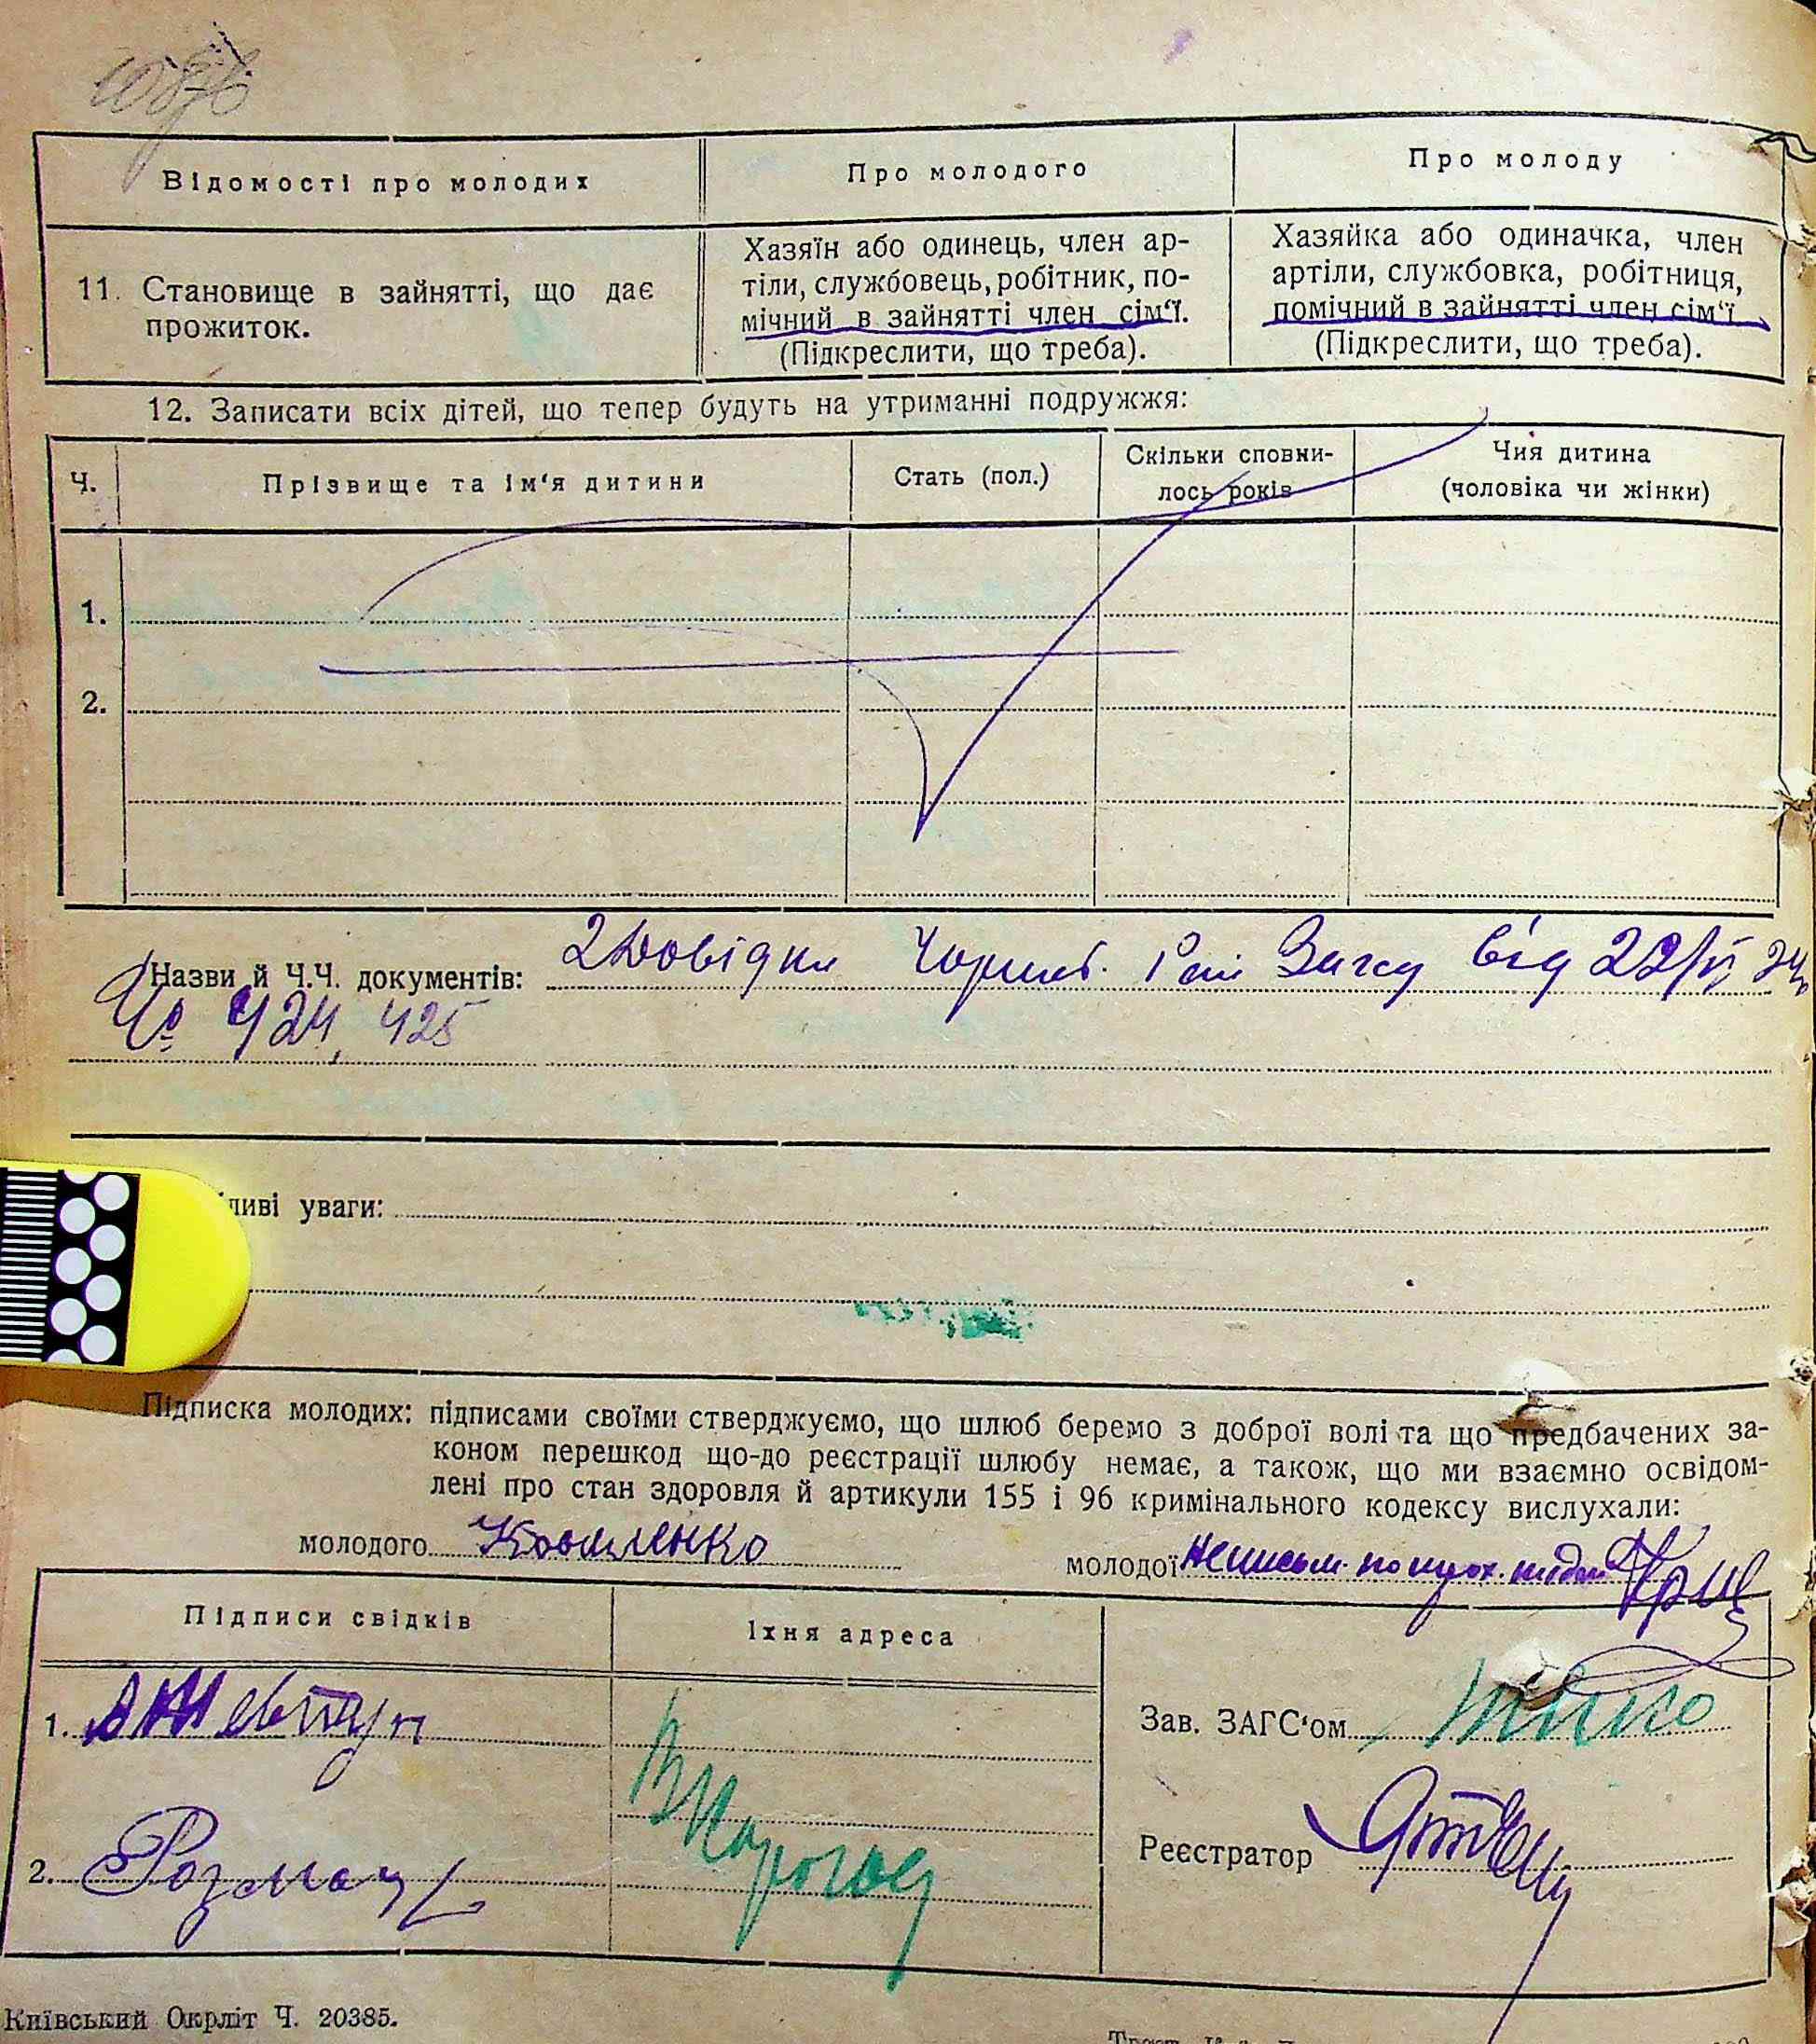 Відомості про молодих
Про молодого
Про молоду
11. Становище в зайнятті, що дає
прожиток.
Хазяїн або одинець, член ар-
тіли, службовець, робітник, по-
мічний в зайнятті член сім'ї.
(Підкреслити, що треба).
Хазяйка або одиначка, член
артіли, службовка, робітниця,
помічний в зайнятті член сім'ї
(Підкреслити, що треба).
12. Записати всіх дітей, що тепер будуть на утриманні подружжя:
Ч.
Прізвище та ім'я дитини
Стать (пол.)
Скільки сповни-
лось років
Чия дитина
(чоловіка чи жінки)
1.
2.
Назви й Ч.Ч. документів: 2 Довідки Загсу від
№ 424, 425
ливі уваги:
Підписка молодих: підписами своїми стверджуємо, що шлюб беремо з доброї волі та що предбачених за-
коном перешкод що-до реєстрації шлюбу немає, а також, що ми взаємно освідом-
лені про стан здоровля й артикули 155 і 96 кримінального кодексу вислухали:
молодого Коваленко
молодої
Підписи свідків
Їхня адреса
1.
2.
Зав. ЗАГС'ом
Реєстратор
Київський Окрліт Ч. 20385.